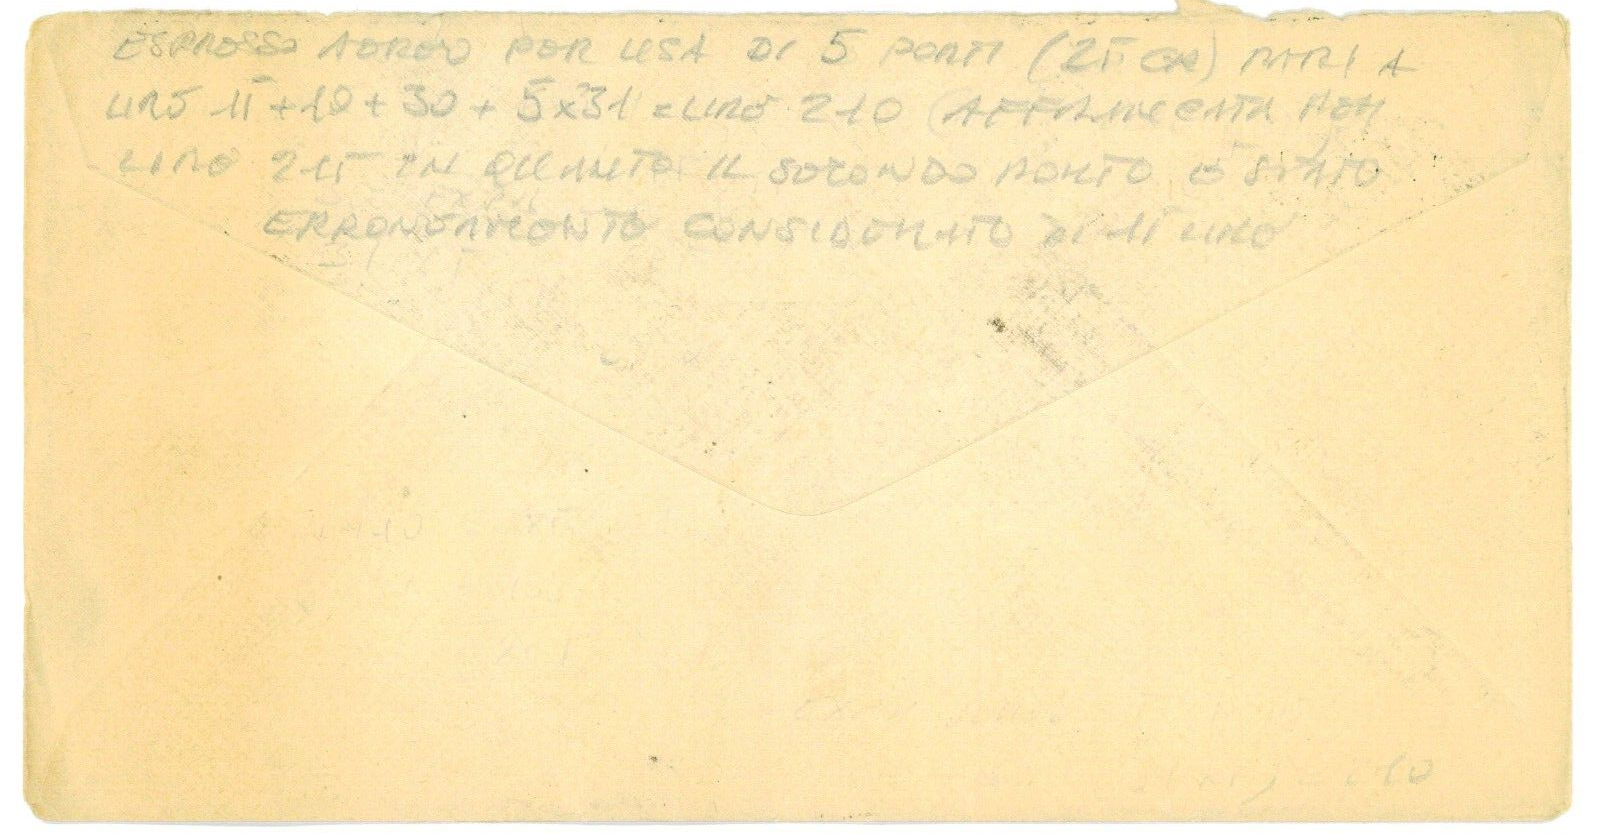 ESPRESSO AEREO PER USA DI 5 PORTI (25 GR) PARI A
LIRE 15 + 10 + 30 + 5x31 = LIRE 210 (AFFRANCATA PER
LIRE 215 IN QUANTO IL SECONDO PORTO È STATO
ERRONEAMENTE CONSIDERATO DI 15 LIRE